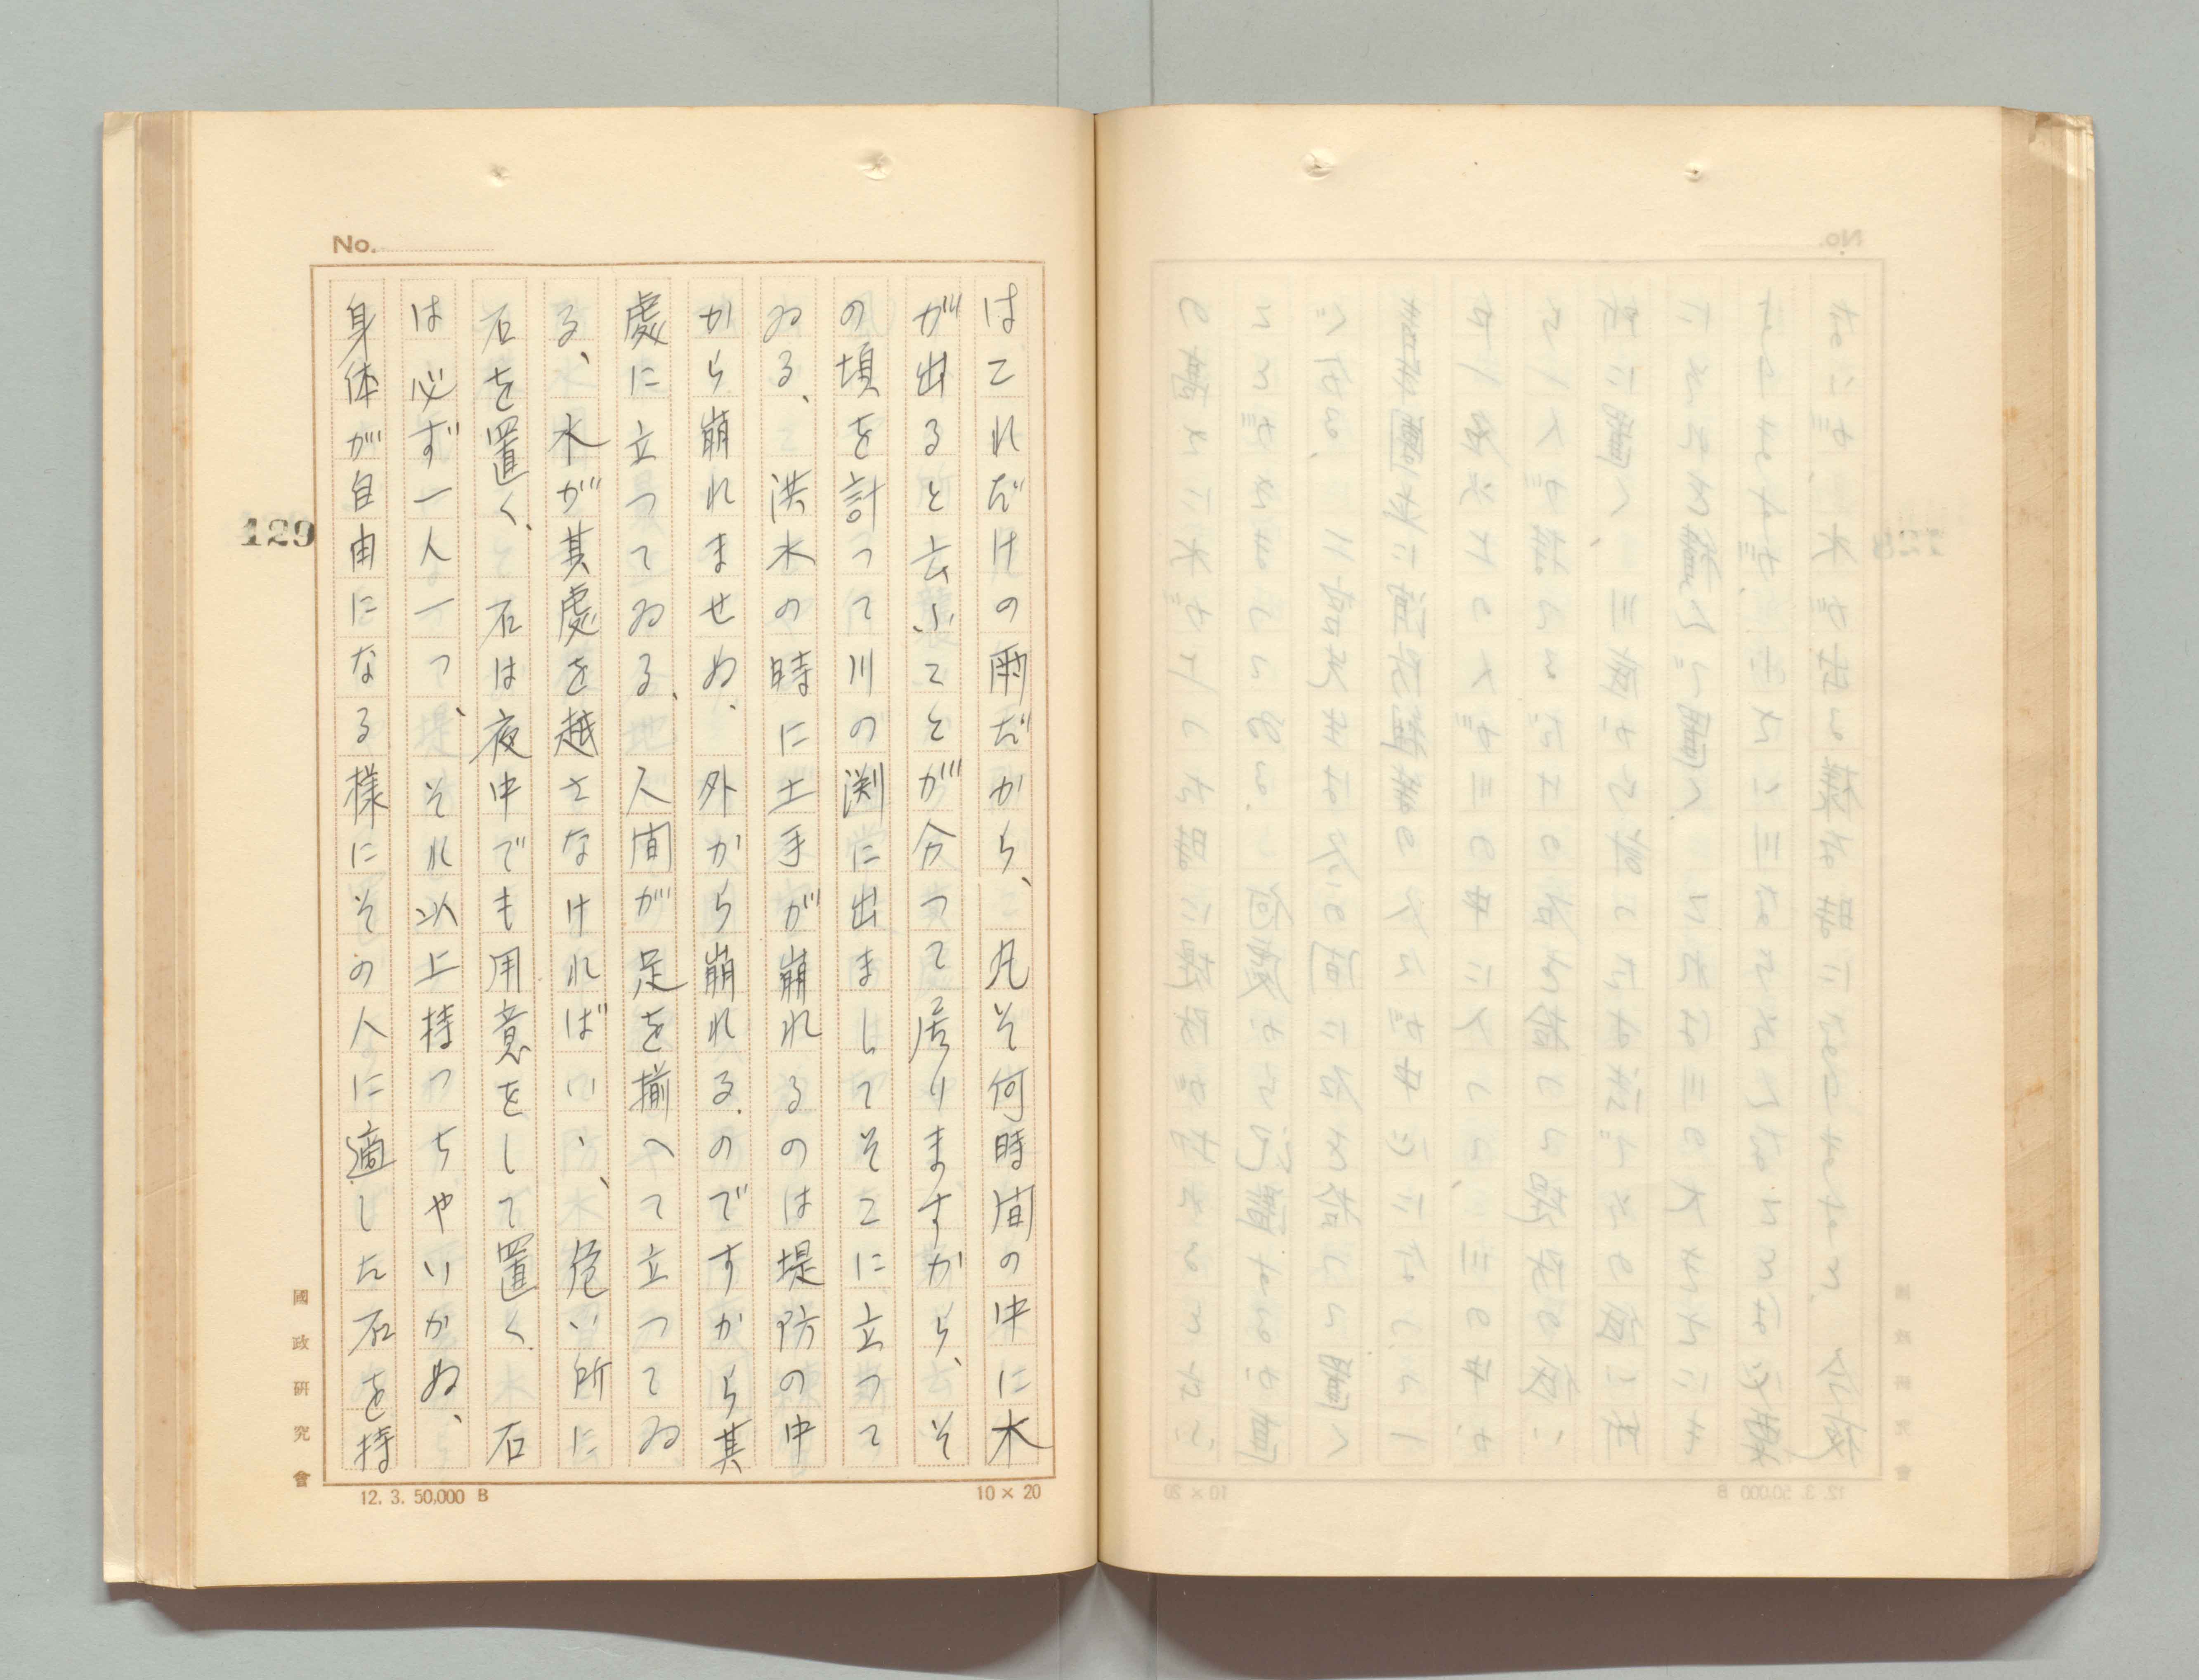 No.
はこれだけの雨だから、凡そ何時間の中に水
が出ると云ふことが分つて居りますから、そ
の頃を計つて川の渕に出ましてそこに立つて
ゐる、洪水の時に土手が崩れるのは堤防の中
から崩れませぬ、外から崩れるのですから其
處に立つてゐる、人間が足を揃へて立つてゐ
る、水が其處を越さなければいゝ、危い所に
石を置く、石は夜中でも用意をして置く、石
は必ず一人一つ、それ以上持つちやいかぬ、
身体が自由になる様にその人に適した石を持
129
國政研究會
12. 3. 50,000 B
10×20